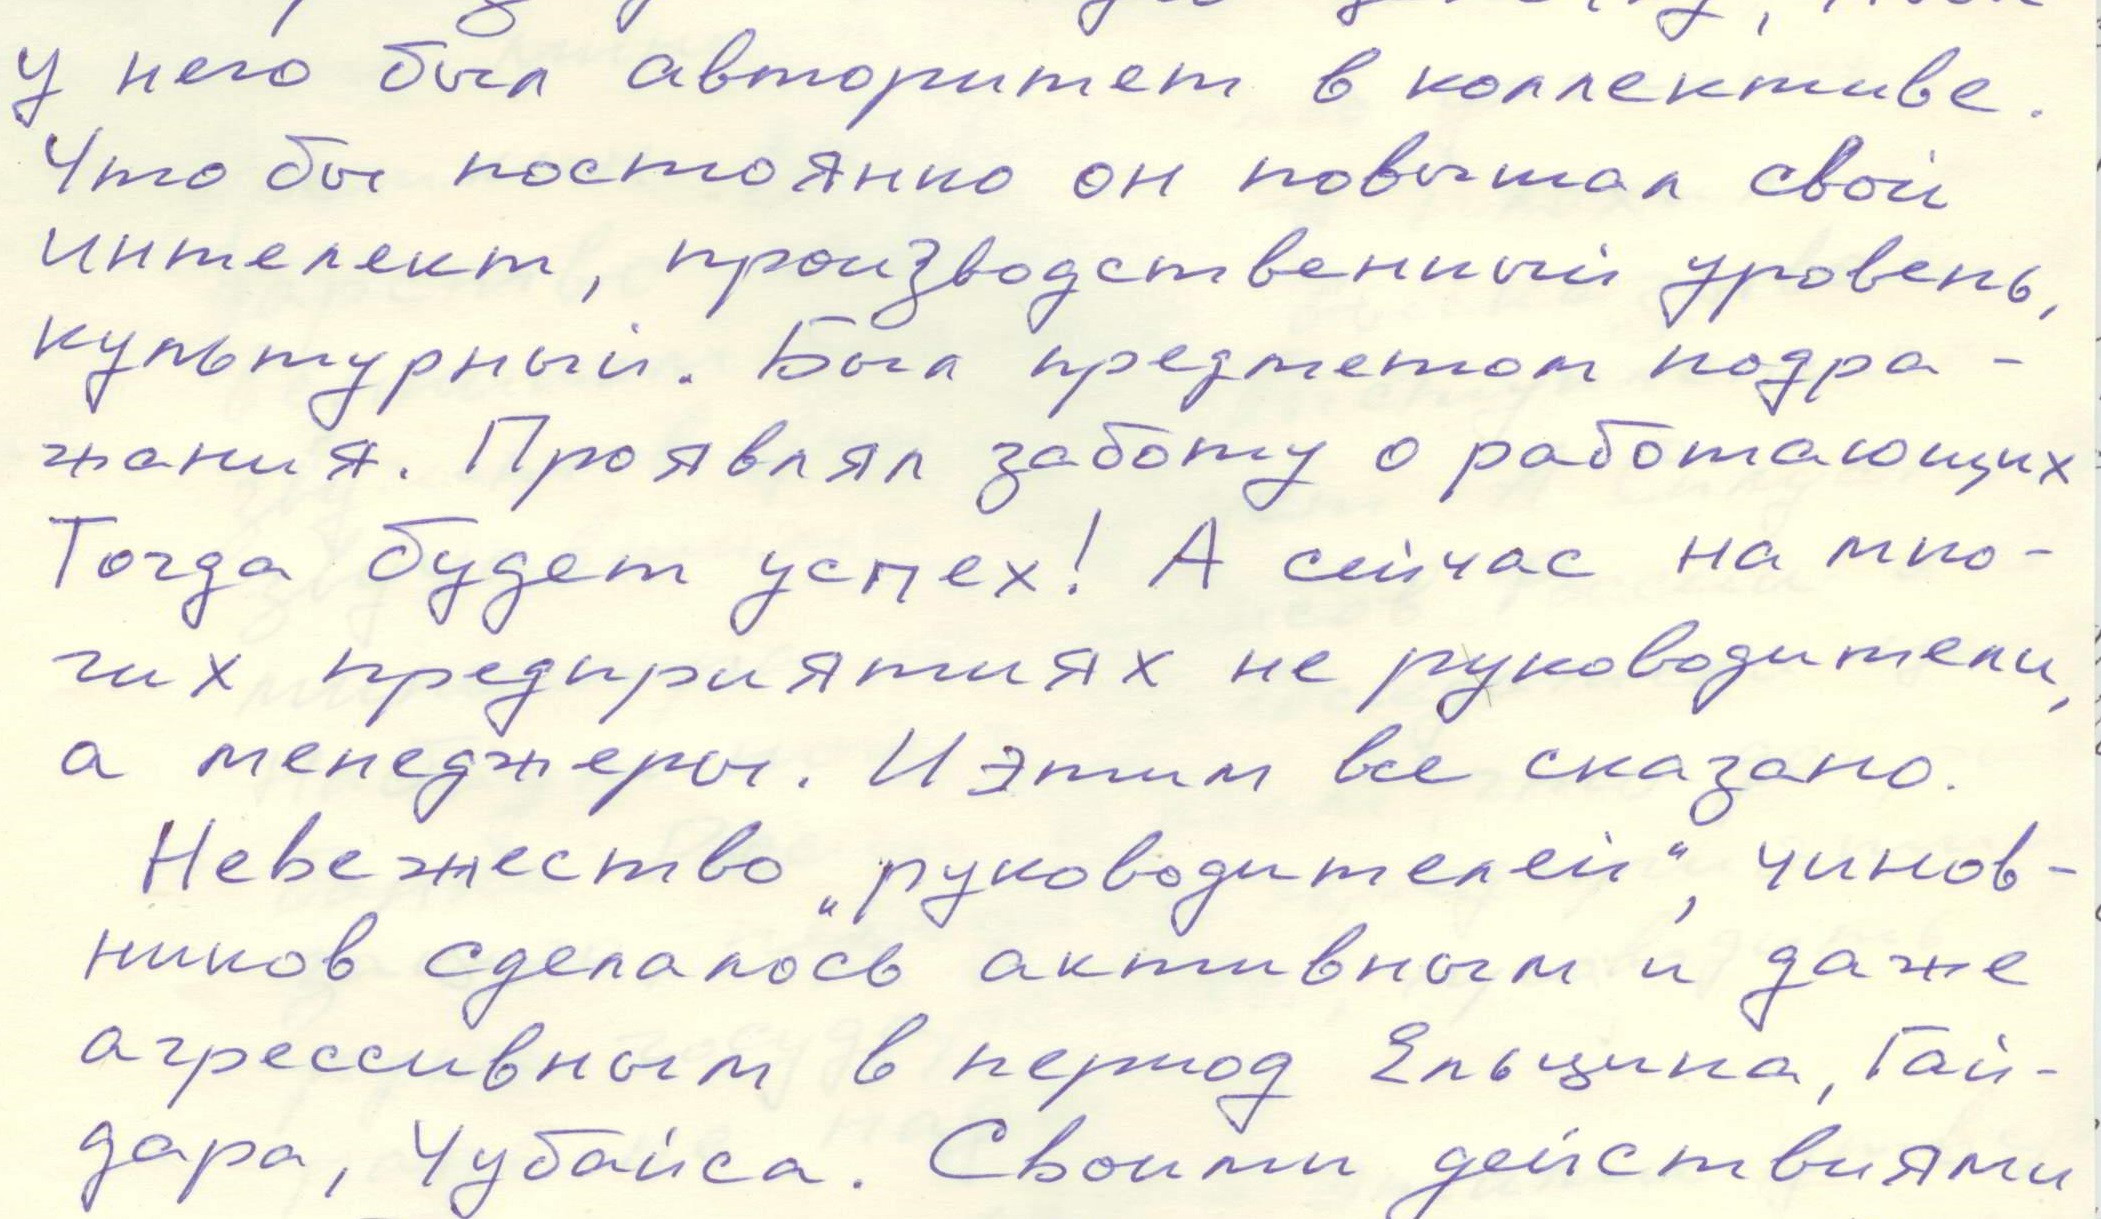 у него был авторитет в коллективе.
Что бы постоянно он повышал свой
интелект, производственный уровень,
культурный. Был предметом подра-
жания. Проявлял заботу о работающих
Тогда будет успех! А сейчас на мно-
гих предприятиях не руководители,
а менеджеры. И этим все сказано.
Невежество „руководителей“, чинов-
ников сделалось активным и даже
агрессивным в период Ельцина, Гай-
дара, Чубайса. Своими действиями